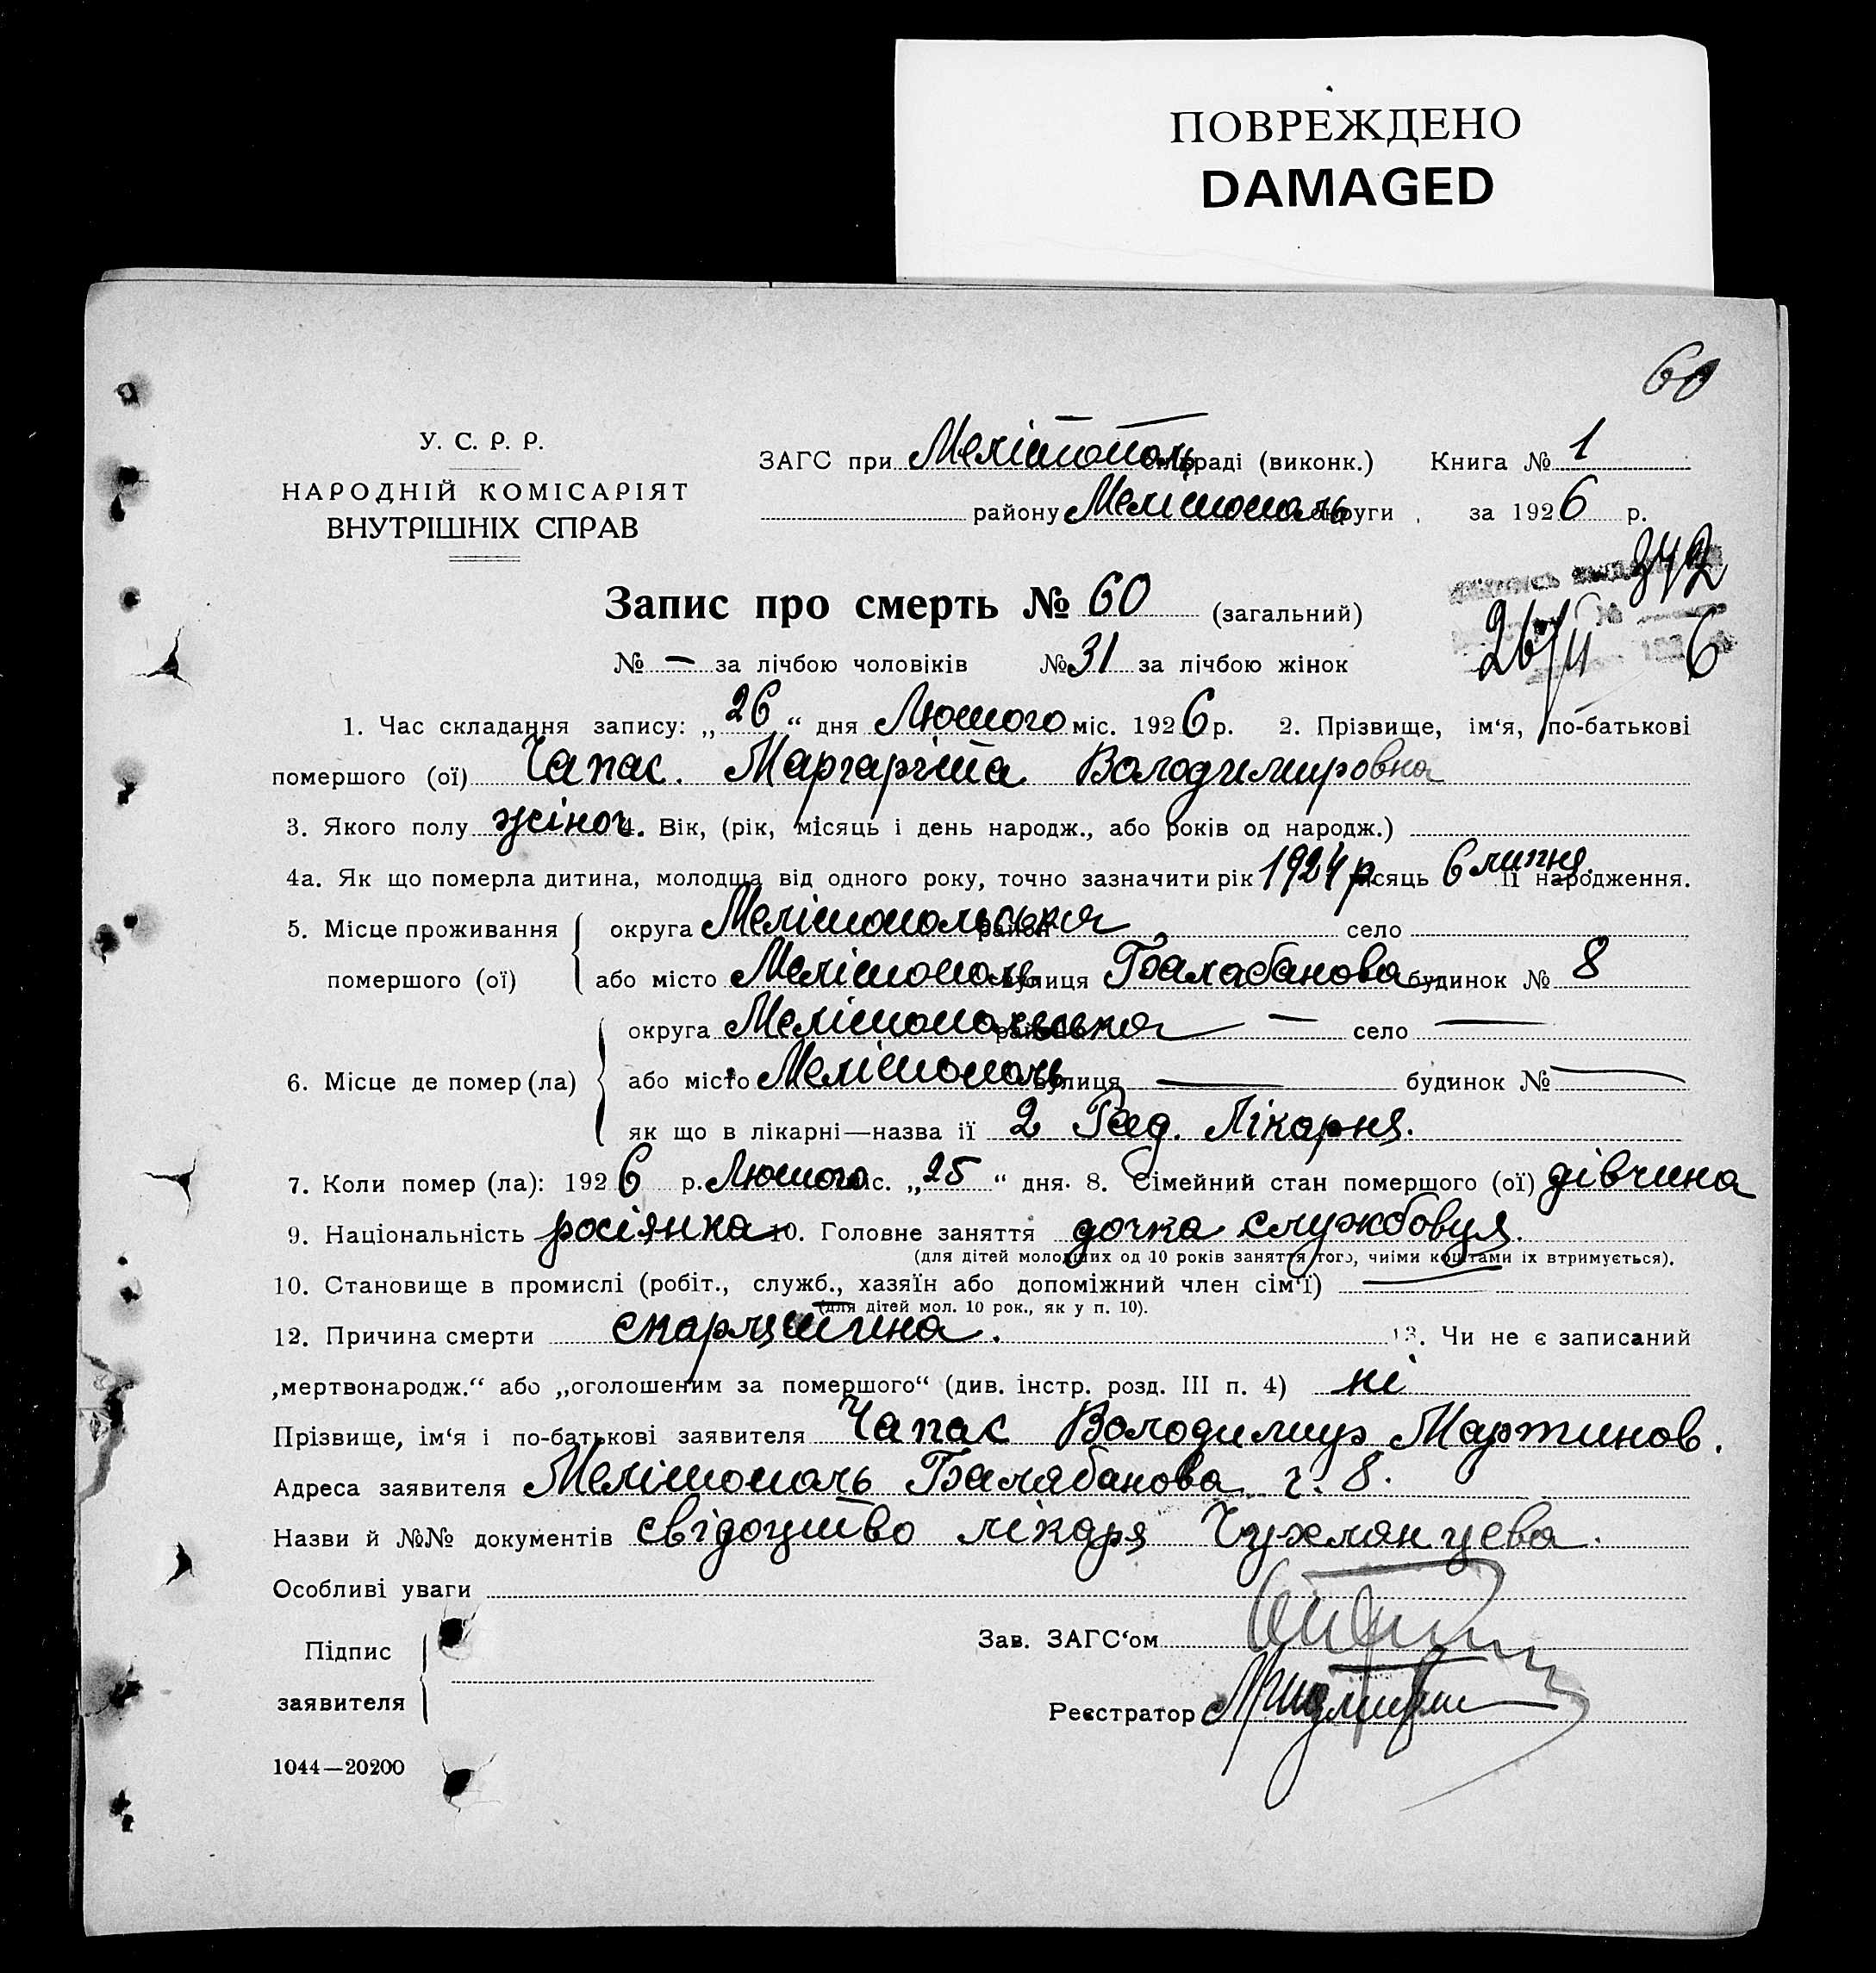 ПОВРЕЖДЕНО
DAMAGED
60
У. С. Р. Р.
НАРОДНІЙ КОМІСАРІЯТ
ВНУТРІШНІХ СПРАВ
ЗАГС при Мелітополь раді (виконк.) Книга № 1
району Мелітополь округи за 1926 р.
342
Запис про смерть № 60 (загальний)
26/II 6
№ — за лічбою чоловіків № 31 за лічбою жінок
1. Час складання запису: „26“ дня Лютого міс. 1926 р. 2. Прізвище, ім‘я, по-батькові
помершого (ої) Чапас. Маргаріта Володимировна
3. Якого полу жіноч. 4. Вік, (рік, місяць і день народж., або років од народж.)
4а. Як що померла дитина, молодша від одного року, точно зазначити рік 1924 р місяць 6 липня. її народження.
5. Місце проживання помершого (ої) округа Мелітопольська район село
або місто Мелітополь вулиця Балабанова будинок № 8
6. Місце де помер (ла) округа Мелітопольська район — село —
або місто Мелітополь вулиця — будинок № —
як що в лікарні—назва ії 2 Рад. Лікарня.
7. Коли помер (ла): 1926 р. Лютого міс. „25“ дня. 8. Сімейний стан помершого (ої) дівчина
9. Національність росіянка 10. Головне заняття дочка службовця.
(для дітей молодших од 10 років заняття того, чиїми коштами іх втримується).
10. Становище в промислі (робіт., служб., хазяїн або допоміжний член сім‘ї) —
(для дітей мол. 10 рок., як у п. 10).
12. Причина смерти скарлятина. 13. Чи не є записаний
„мертвонародж.“ або „оголошеним за помершого“ (див. інстр. розд. III п. 4) ні
Прізвище, ім‘я і по-батькові заявителя Чапас Володимир Мартинов.
Адреса заявителя Мелітополь Балабанова ч. 8.
Назви й №№ документів свідоцтво лікаря Чухлянцева.
Особливі уваги
Підпис
заявителя
Зав. ЗАГС‘ом
Реєстратор
1044—20200